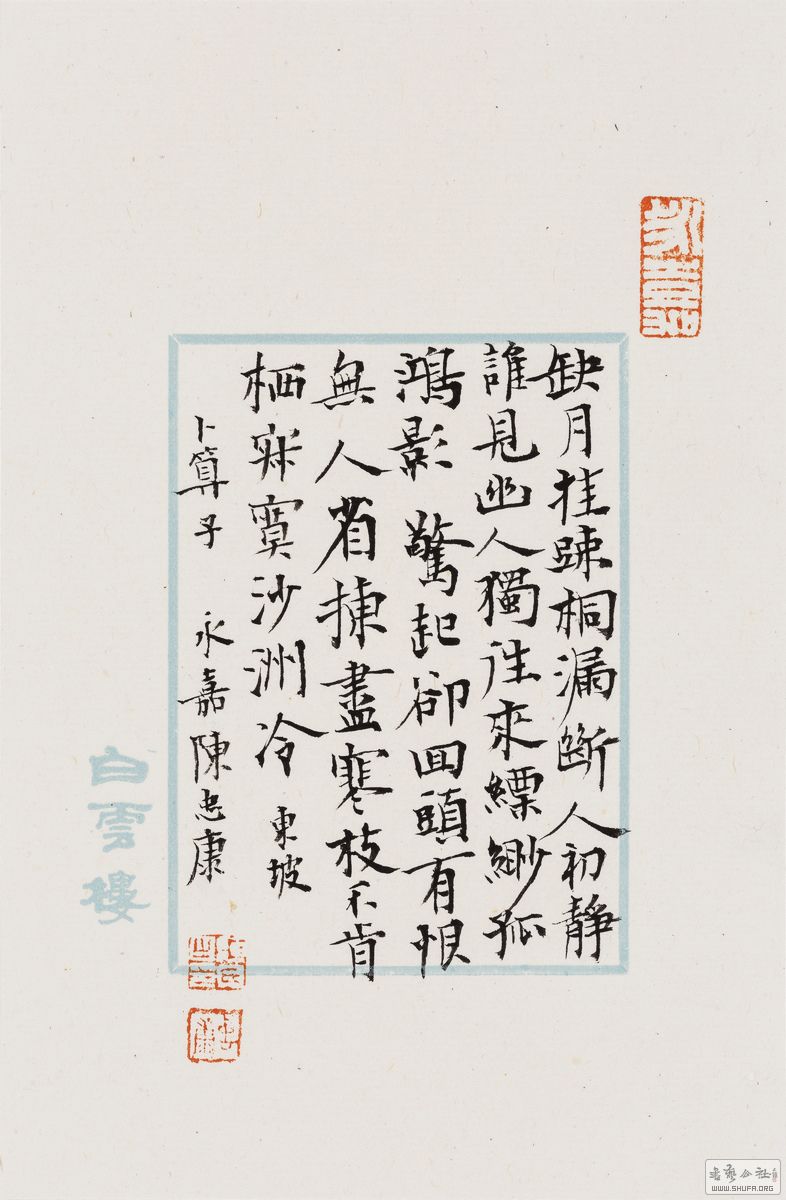 缺月挂踈桐漏斷人初靜
誰見幽人獨往來縹緲孤
鴻影驚起卻回頭有恨
無人省揀盡寒枝不肯
栖寂寞沙洲冷東坡
卜算子 永嘉陳忠康
白雲樓
書藝公社
WWW.SHUFA.ORG